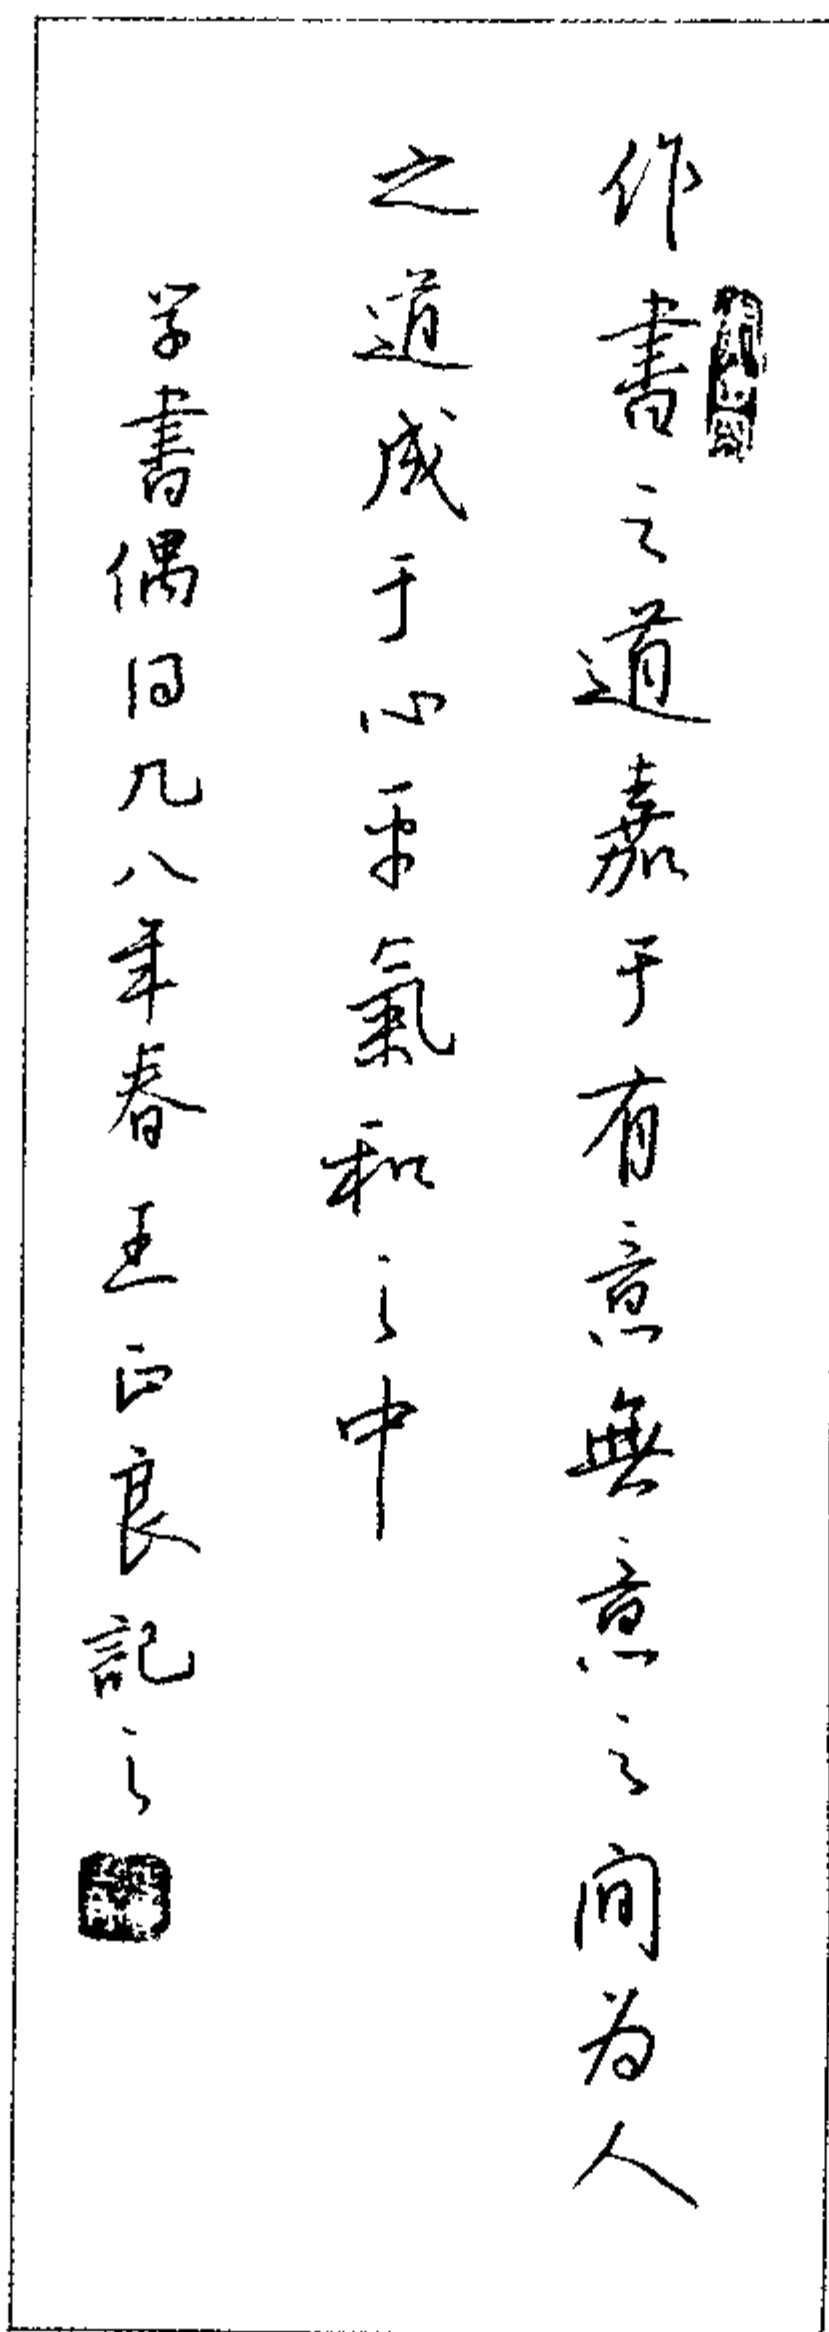 作書之道嘉于有意無意之间为人
之道成于心平氣和之中
学書偶同九八年春王正良記之